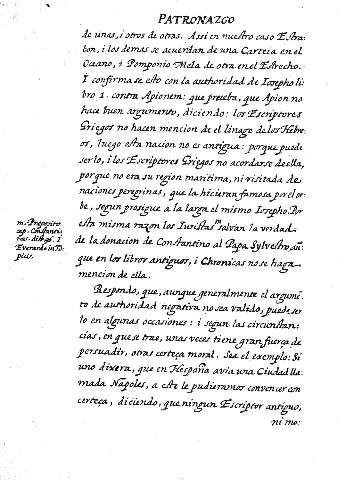 PATRONAZGO
de unas, i otros de otras. Assi en nuestro caso Estra-
bon, i los demas se acuerdan de una Carteia en el
Oceano, i Pomponio Mela de otra en el Estrecho.
I confirma se esto con la authoridad de Iosepho li-
bro 1. contra Apionem: que prueba, que Apion no
hace buen argumento, diciendo: los Escriptores
Griegos no hacen mencion de el linage de los Hebre-
os, luego esta nacion no es antigua: porque puede
ser lo, i los Escriptores Griegos no acordarse de ella,
porque no era su region maritima, ni visitada de
naciones peregrinas, que la hicieran famosa por el or-
be, segun prosigue a la larga el mismo Iosepho. Por
esta misma razon los Iuristas m salvan la verdad
de la donacion de Constantino al Papa Sylvestro, aũ-
que en los libros antiguos, i Chronicas no se haga
mencion de ella.
m. Præposito
cap. Constanti-
nus. dist. 96. I
Everardo in To-
picis.
Respondo, que, aunque generalmente el argumẽ-
to de authoridad negativa no sea valido, puede ser
lo en algunas occasiones: i segun las circunstan-
cias, en que se trae, unas veces tiene gran fuerça de
persuadir, otras certeça moral. Sea el exemplo: Si
uno dixera, que en Hespaña avia una Ciudad lla-
mada Napoles, a este le pudieramos convencer con
certeça, diciendo, que ningun Escriptor antiguo,
ni mo: